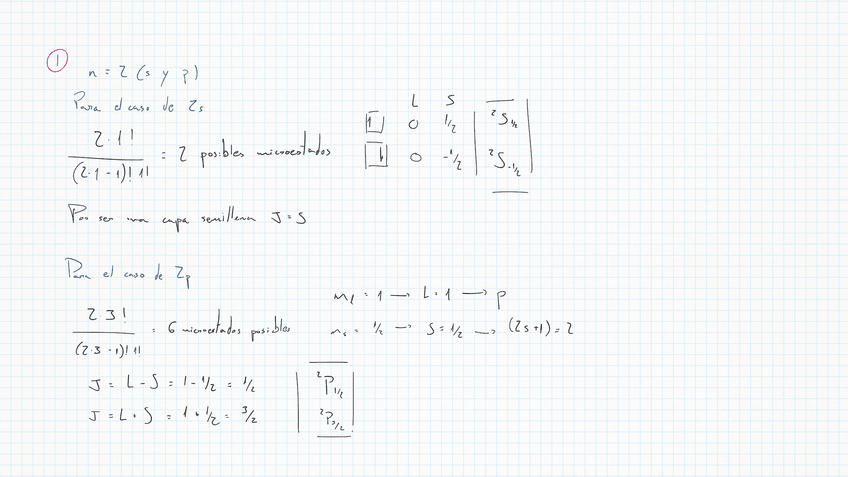 1
n = 2 (s y p)
Para el caso de 2s
2·1! / (2·1 - 1)! 1! = 2 posibles microestados
L S
1 0 1/2 ²S1/2
1 0 -1/2 ²S-1/2
Por ser una capa semillena J = S
Para el caso de 2p
2·3! / (2·3 - 1)! 1! = 6 microestados posibles
ml = 1 → L = 1 → p
ms = 1/2 → S = 1/2 → (2s+1) = 2
J = L - S = 1 - 1/2 = 1/2 ²P1/2
J = L + S = 1 + 1/2 = 3/2 ²P3/2